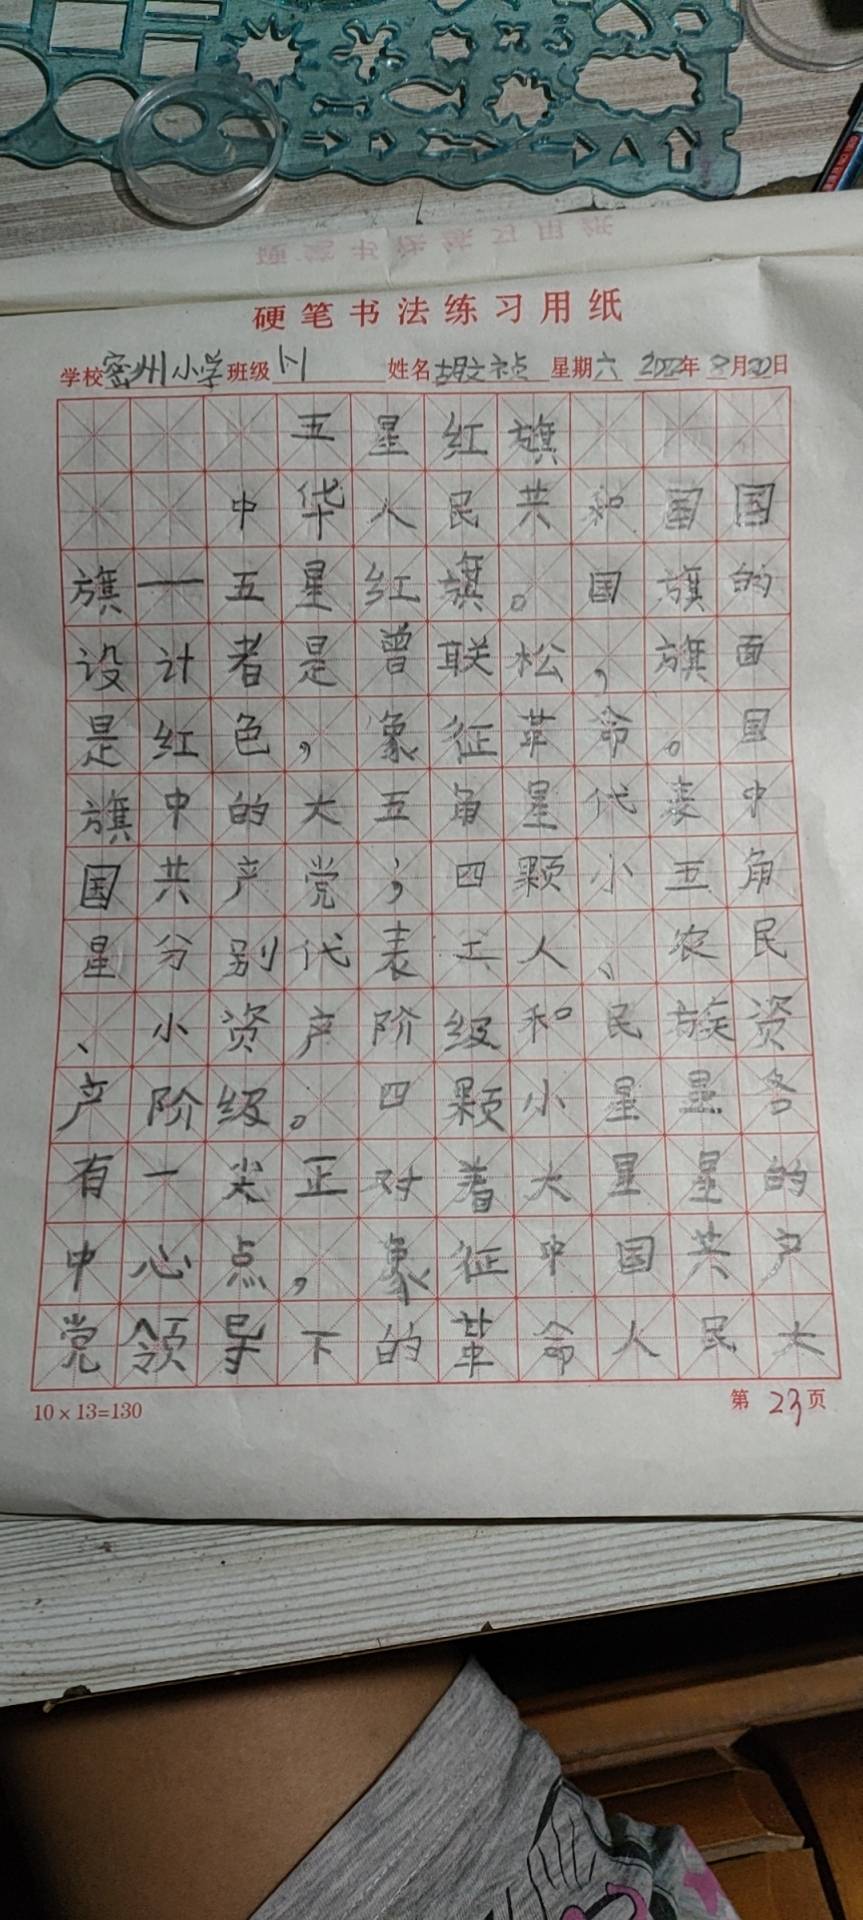 硬笔书法练习用纸
学校密州小学班级1-1 姓名胡文祯 星期六 2022年8月20日
五星红旗
中华人民共和国国
旗一五星红旗。国旗的
设计者是曾联松，旗面
是红色，象征革命。国
旗中的大五角星代表中
国共产党；四颗小五角
星分别代表工人、农民
、小资产阶级和民族资
产阶级。四颗小星星各
有一尖正对着大星星的
中心点，象征中国共产
党领导下的革命人民大
10×13=130 第23页